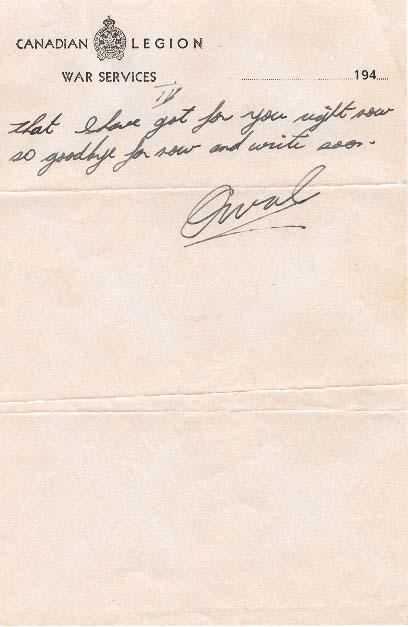 CANADIAN LEGION
WAR SERVICES
194
IV
that I have got for you right now
so goodbye for now and write soon.
Orval